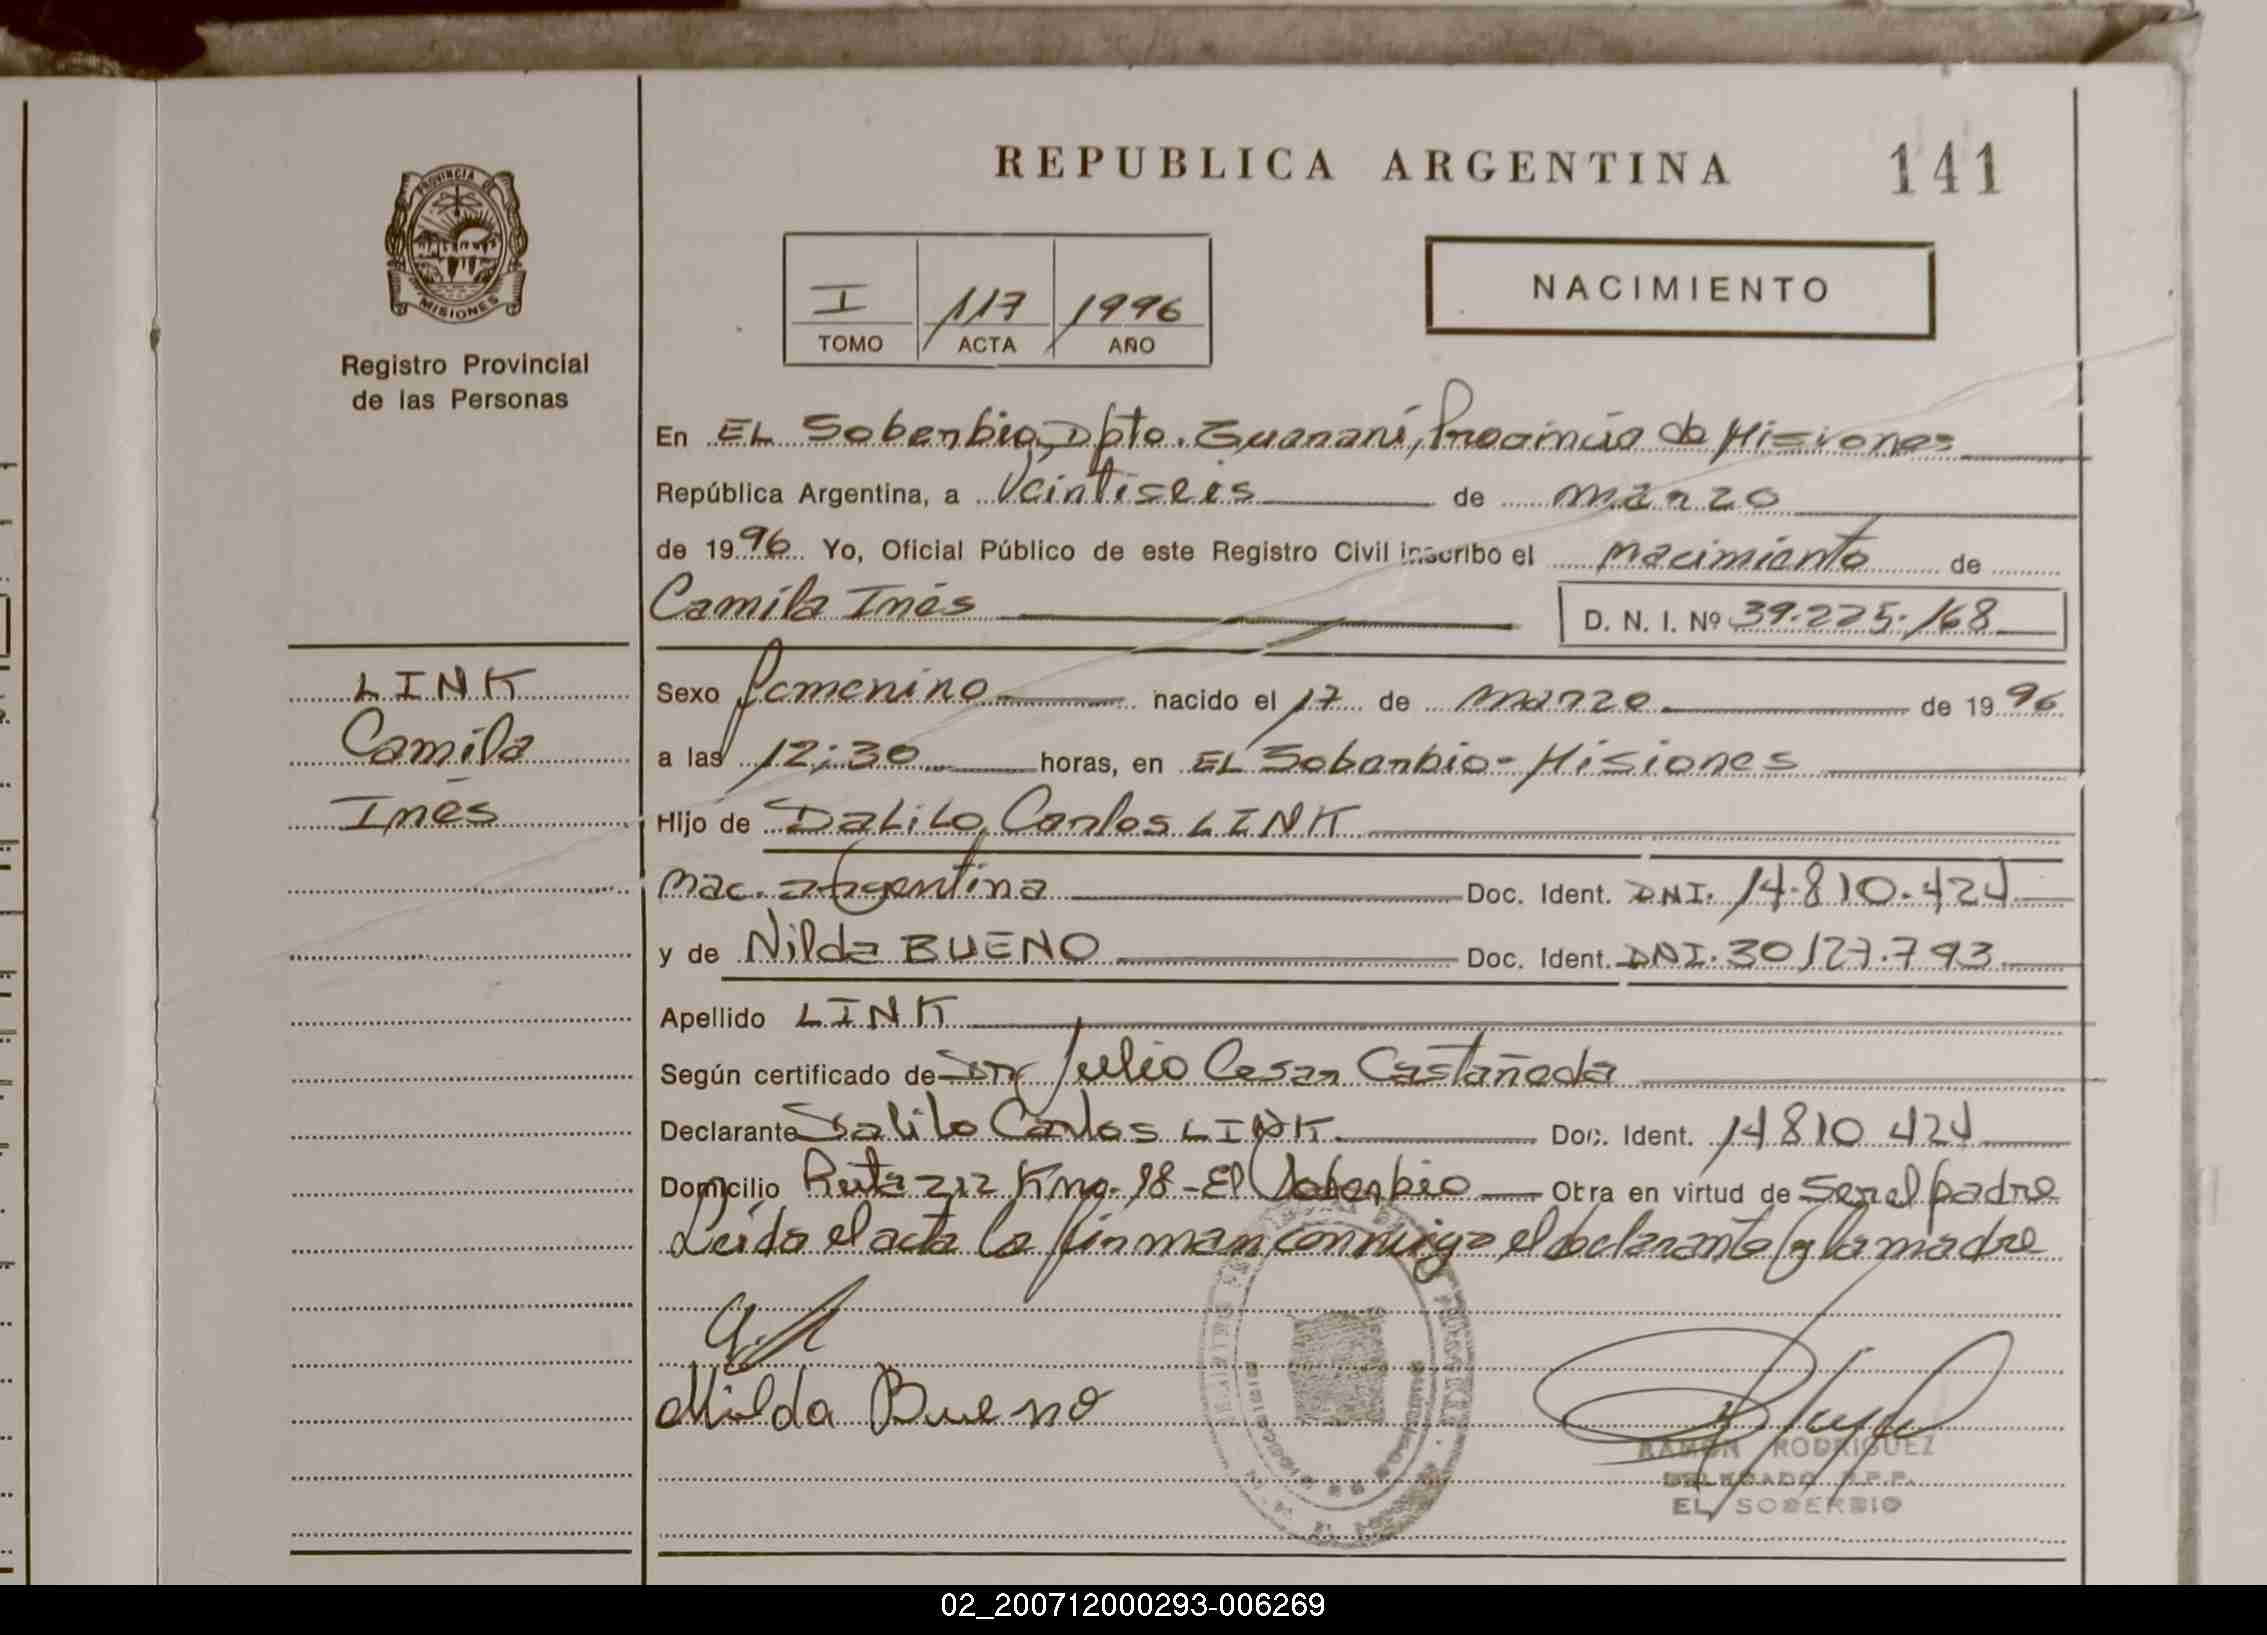 REPUBLICA ARGENTINA 141
PROVINCIA DE
MISIONES
Registro Provincial
de las Personas
I 117 1996
TOMO ACTA AÑO
NACIMIENTO
En EL Soberbio, Dpto. Guaraní, Provincia de Misiones
República Argentina, a Veintiseis de marzo
de 1996 Yo, Oficial Público de este Registro Civil inscribo el nacimiento de
Camila Inés D. N. I. Nº 39.225.168
LINK
Camila
Inés
Sexo femenino nacido el 17 de marzo de 1996
a las 12:30 horas, en EL Soberbio - Misiones
Hijo de Dalilo Carlos LINK
nac. argentina Doc. Ident. DNI. 14.810.424
y de Nilda BUENO Doc. Ident. DNI. 30127.793
Apellido LINK
Según certificado de Dr Julio Cesar Castañeda
Declarante Dalilo Carlos LINK Doc. Ident. 14810 424
Domicilio Ruta 212 Km. 18 - El Soberbio Obra en virtud de ser el padre
Leída el acta la firman conmigo el declarante y la madre
Nilda Bueno
RAMON RODRIGUEZ
DELEGADO R.P.P.
EL SOBERBIO
02_200712000293-006269